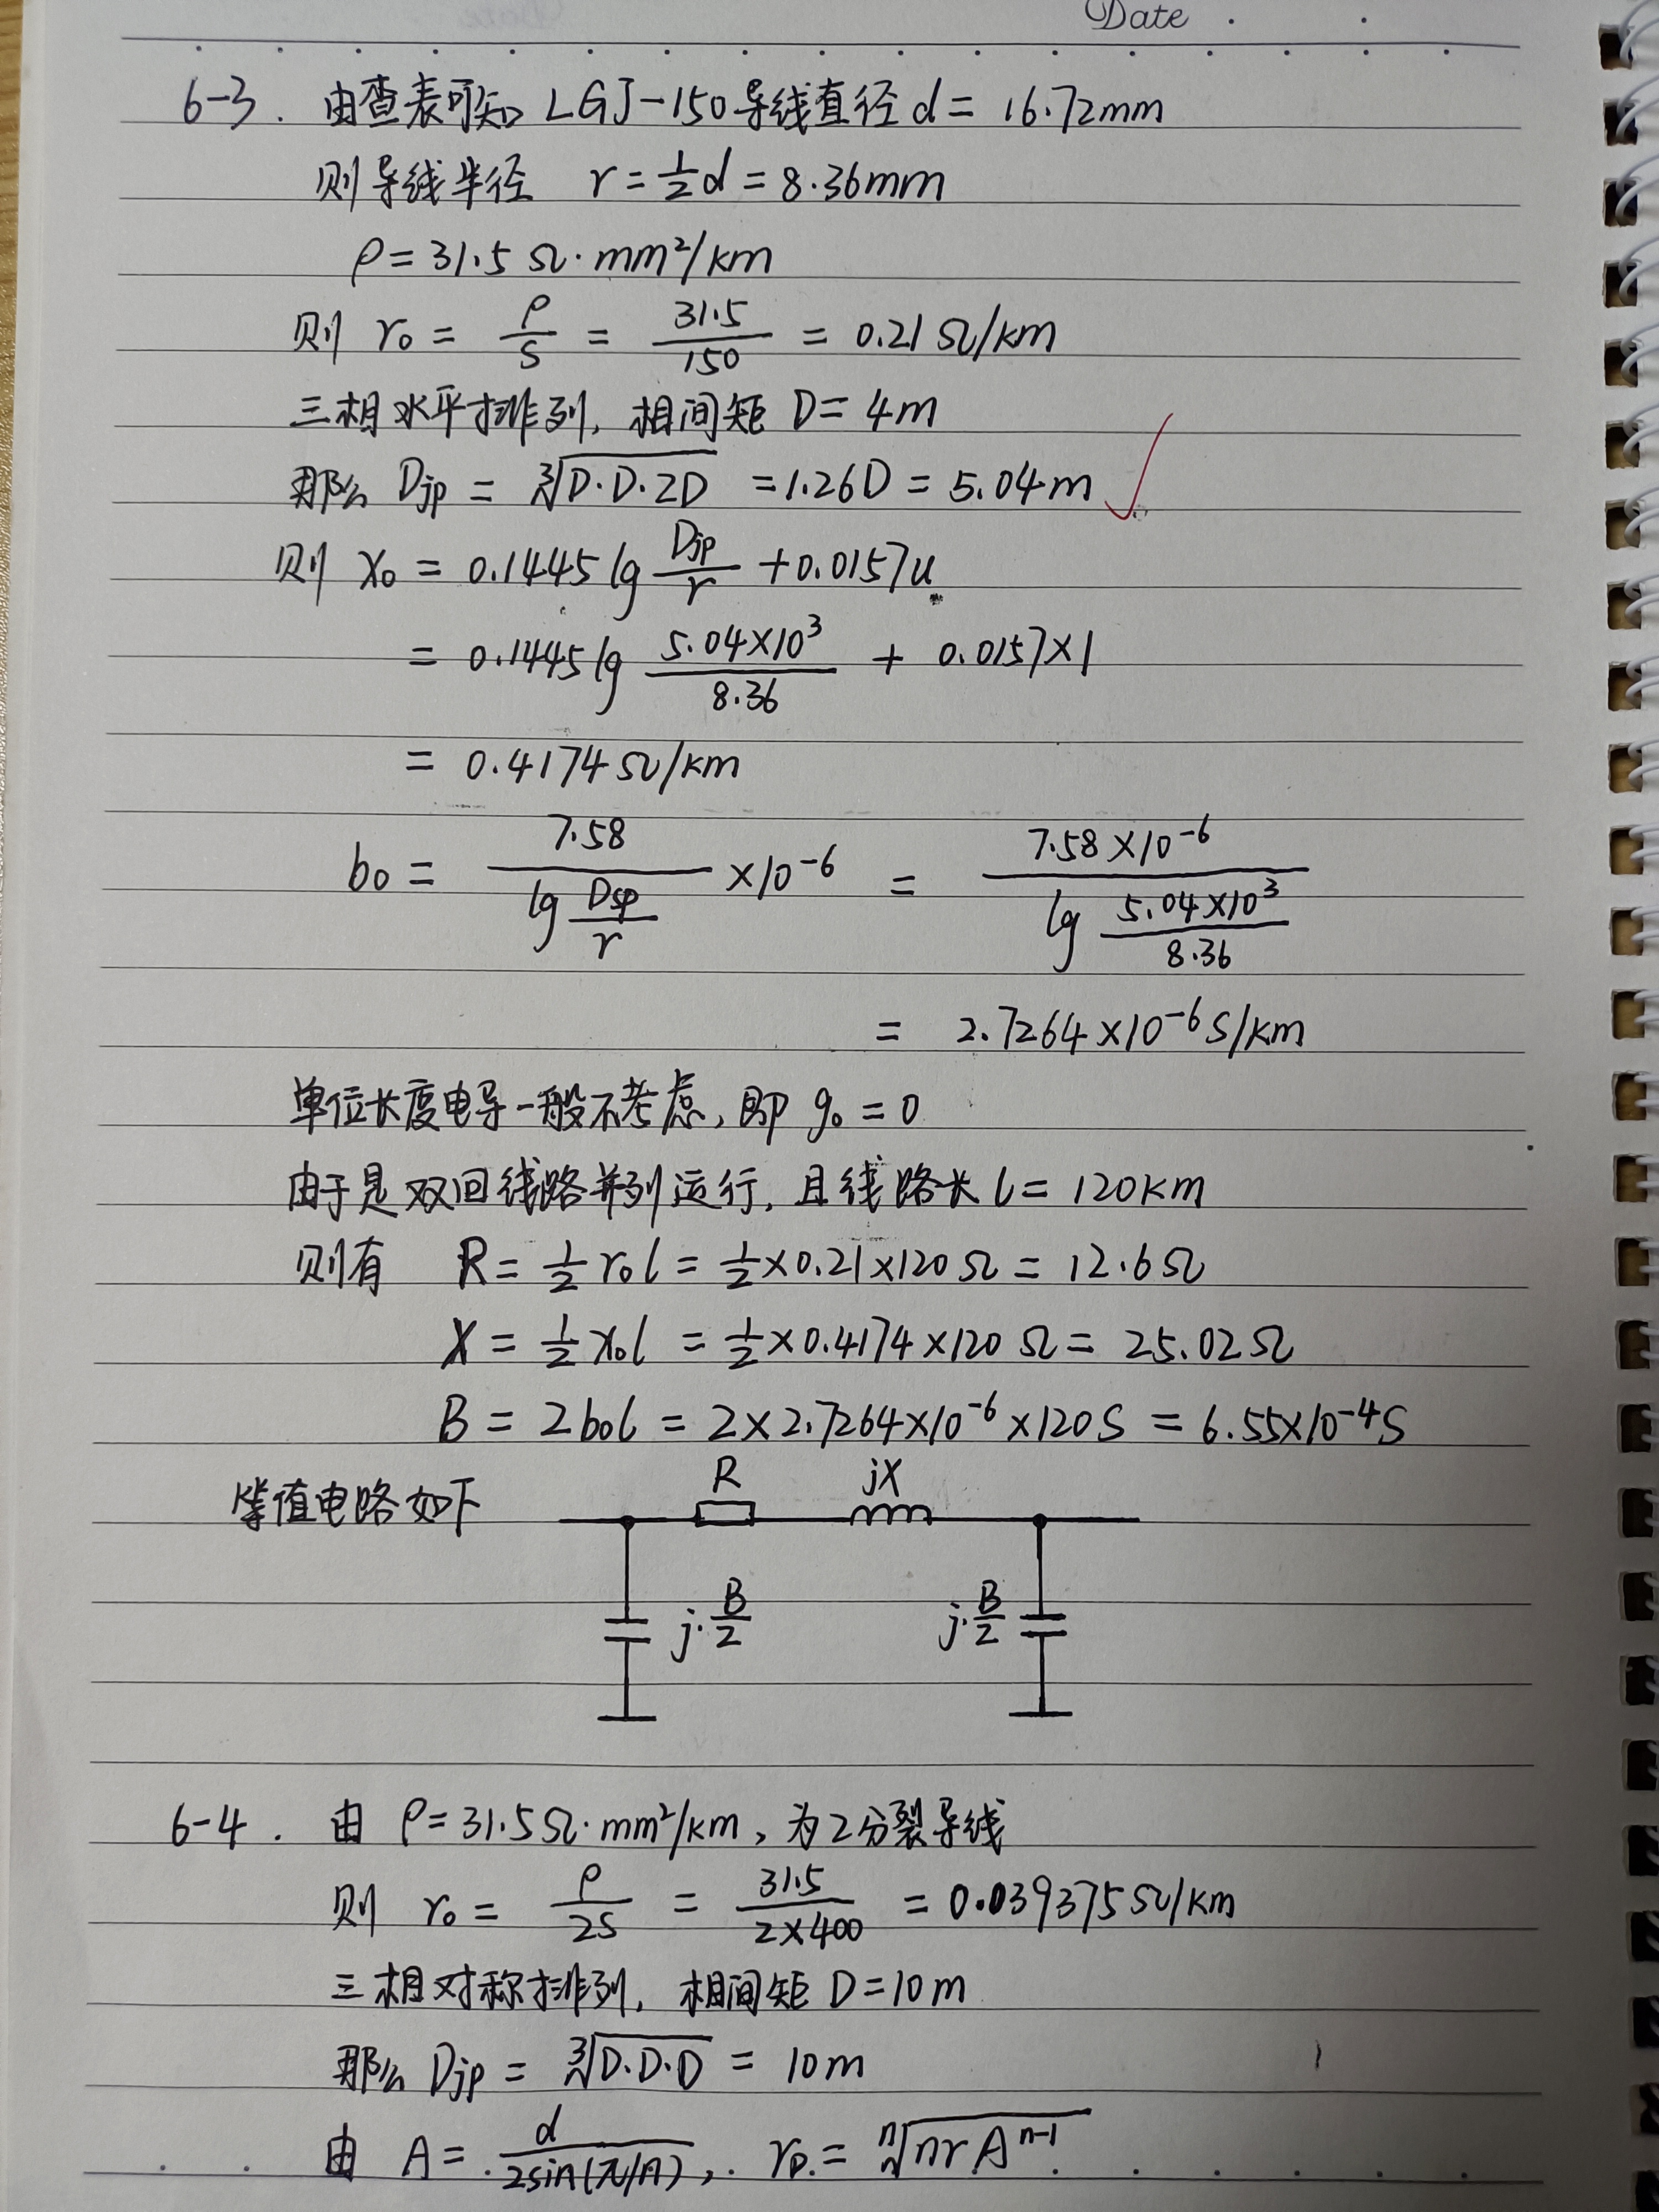 Date
6-3. 由查表可知 LGJ-150导线直径 d = 16.72mm
则导线半径 r = 1/2 d = 8.36mm
ρ = 31.5 Ω·mm²/km
则 r₀ = ρ/S = 31.5/150 = 0.21 Ω/km
三相水平排列, 相间矩 D = 4m
那么 Djp = ³√(D·D·2D) = 1.26D = 5.04m
则 x₀ = 0.1445 lg Djp/r + 0.0157u
= 0.1445 lg (5.04×10³)/8.36 + 0.0157×1
= 0.4174 Ω/km
b₀ = 7.58/(lg Dsp/r) ×10⁻⁶ = (7.58×10⁻⁶)/(lg (5.04×10³)/8.36)
= 2.7264×10⁻⁶ S/km
单位长度电导一般不考虑, 即 g₀ = 0
由于是双回线路并列运行, 且线路长 l = 120km
则有 R = 1/2 r₀l = 1/2×0.21×120 Ω = 12.6 Ω
X = 1/2 x₀l = 1/2×0.4174×120 Ω = 25.02 Ω
B = 2b₀l = 2×2.7264×10⁻⁶×120S = 6.55×10⁻⁴S
等值电路如下
R jX
j·B/2 j·B/2
6-4. 由 ρ = 31.5 Ω·mm²/km, 为2分裂导线
则 r₀ = ρ/2S = 31.5/(2×400) = 0.039375 Ω/km
三相对称排列, 相间矩 D = 10m
那么 Djp = ³√(D·D·D) = 10m
由 A = d/(2sin(π/A)), r_D = ⁿ√(nrAⁿ⁻¹)